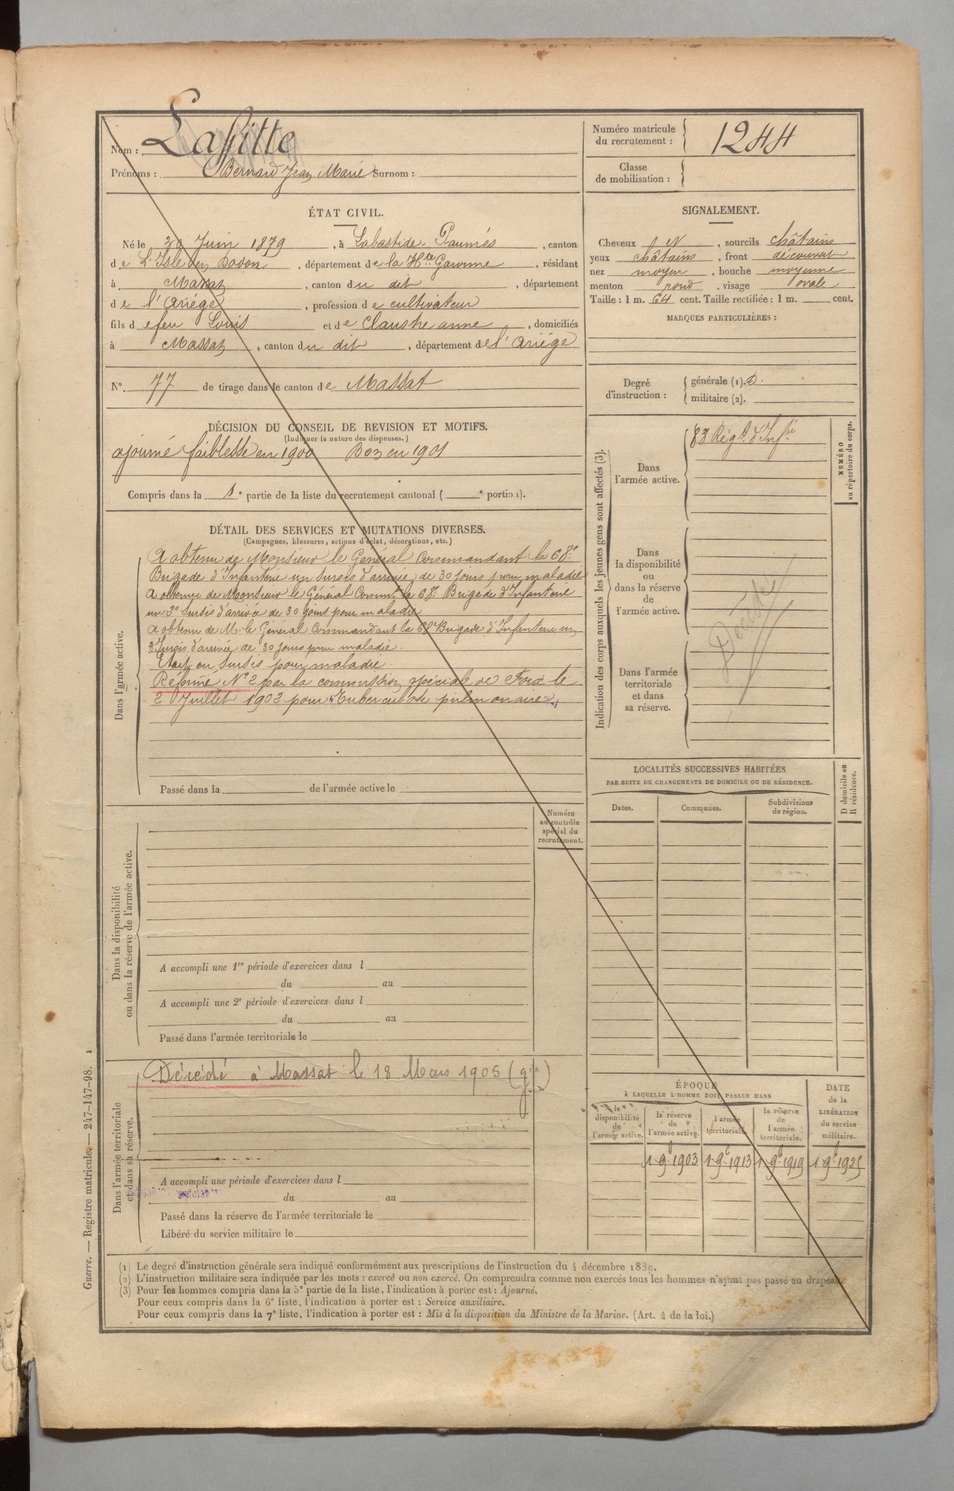 Nom : Lafitte
Prénoms : Bernard Jean Marie Surnom :
Numéro matricule du recrutement : 1244
Classe de mobilisation :
ÉTAT CIVIL.
Né le 30 Juin 1879, à Labastide Paumés, canton
de L'Isle en Dodon, département de la Hte Garonne, résidant
à Massat, canton du dit, département
de l'Ariège, profession de cultivateur
fils de feu Louis et de Claustre anne, domiciliés
à Massat, canton du dit, département de l'Ariége
N° 77 de tirage dans le canton de Massat
DÉCISION DU CONSEIL DE REVISION ET MOTIFS.
(Indiquer la nature des dispenses.)
ajourné faiblesse en 1900 Bon en 1901
Compris dans la partie de la liste du recrutement cantonal ( e portion).
DÉTAIL DES SERVICES ET MUTATIONS DIVERSES.
(Campagnes, blessures, actions d'éclat, décorations, etc.)
Dans l'armée active.
A obtenu de Monsieur le Général Commandant la 68e
Brigade d'Infanterie un sursis d'arrivée de 30 jours pour maladie
A obtenu de Monsieur le Général Commt la 68e Brigade d'Infanterie
un 2e Sursis d'arrivée de 30 jours pour maladie
A obtenu de Mr le Général Commandant la 68e Brigade d'Infanterie un
3e Sursis d'arrivée de 30 jours pour maladie.
Etait en sursis pour maladie
Réformé N° 2 par la commission spéciale de Foix le
2 Juillet 1902 pour Tuberculose pulmonaire.
Passé dans la de l'armée active le
Numéro au contrôle spécial du recrutement.
Dans la disponibilité ou dans la réserve de l'armée active.
A accompli une 1re période d'exercices dans l
du au
A accompli une 2e période d'exercices dans l
du au
Passé dans l'armée territoriale le
Dans l'armée territoriale et dans sa réserve.
Décédé à Massat le 18 Mars 1905
A accompli une période d'exercices dans l
du au
Passé dans la réserve de l'armée territoriale le
Libéré du service militaire le
SIGNALEMENT.
Cheveux N, sourcils châtains
yeux châtains, front découvert
nez moyen, bouche moyenne
menton rond, visage ovale
Taille : 1 m. 64 cent. Taille rectifiée : 1 m. cent.
MARQUES PARTICULIÈRES :
Degré d'instruction :
générale (1).
militaire (2).
Indication des corps auxquels les jeunes gens sont affectés (3).
Dans l'armée active.
83 Régt d'Infie
NUMÉRO au répertoire du corps.
Dans la disponibilité ou dans la réserve de l'armée active.
Dans l'armée territoriale et dans sa réserve.
Décédé
LOCALITÉS SUCCESSIVES HABITÉES
PAR SUITE DE CHANGEMENTS DE DOMICILE OU DE RÉSIDENCE.
Dates. Communes. Subdivisions de région. D domicile ou R résidence.
ÉPOQUE
À LAQUELLE L'HOMME DOIT PASSER DANS
la disponibilité de l'armée active.
la réserve de l'armée active.
l'armée territoriale.
la réserve de l'armée territoriale.
DATE de la LIBÉRATION du service militaire.
1 9b 1903 1 9b 1913 1 9b 1919 1 9b 1925
(1) Le degré d'instruction générale sera indiqué conformément aux prescriptions de l'instruction du 4 décembre 1889.
(2) L'instruction militaire sera indiquée par les mots : exercé ou non exercé. On comprendra comme non exercés tous les hommes n'ayant pas passé au drapeau.
(3) Pour les hommes compris dans la 5e partie de la liste, l'indication à porter est : Ajourné.
Pour ceux compris dans la 6e liste, l'indication à porter est : Service auxiliaire.
Pour ceux compris dans la 7e liste, l'indication à porter est : Mis à la disposition du Ministre de la Marine. (Art. 4 de la loi.)
Guerre. — Registre matricule. — 247-147-98.